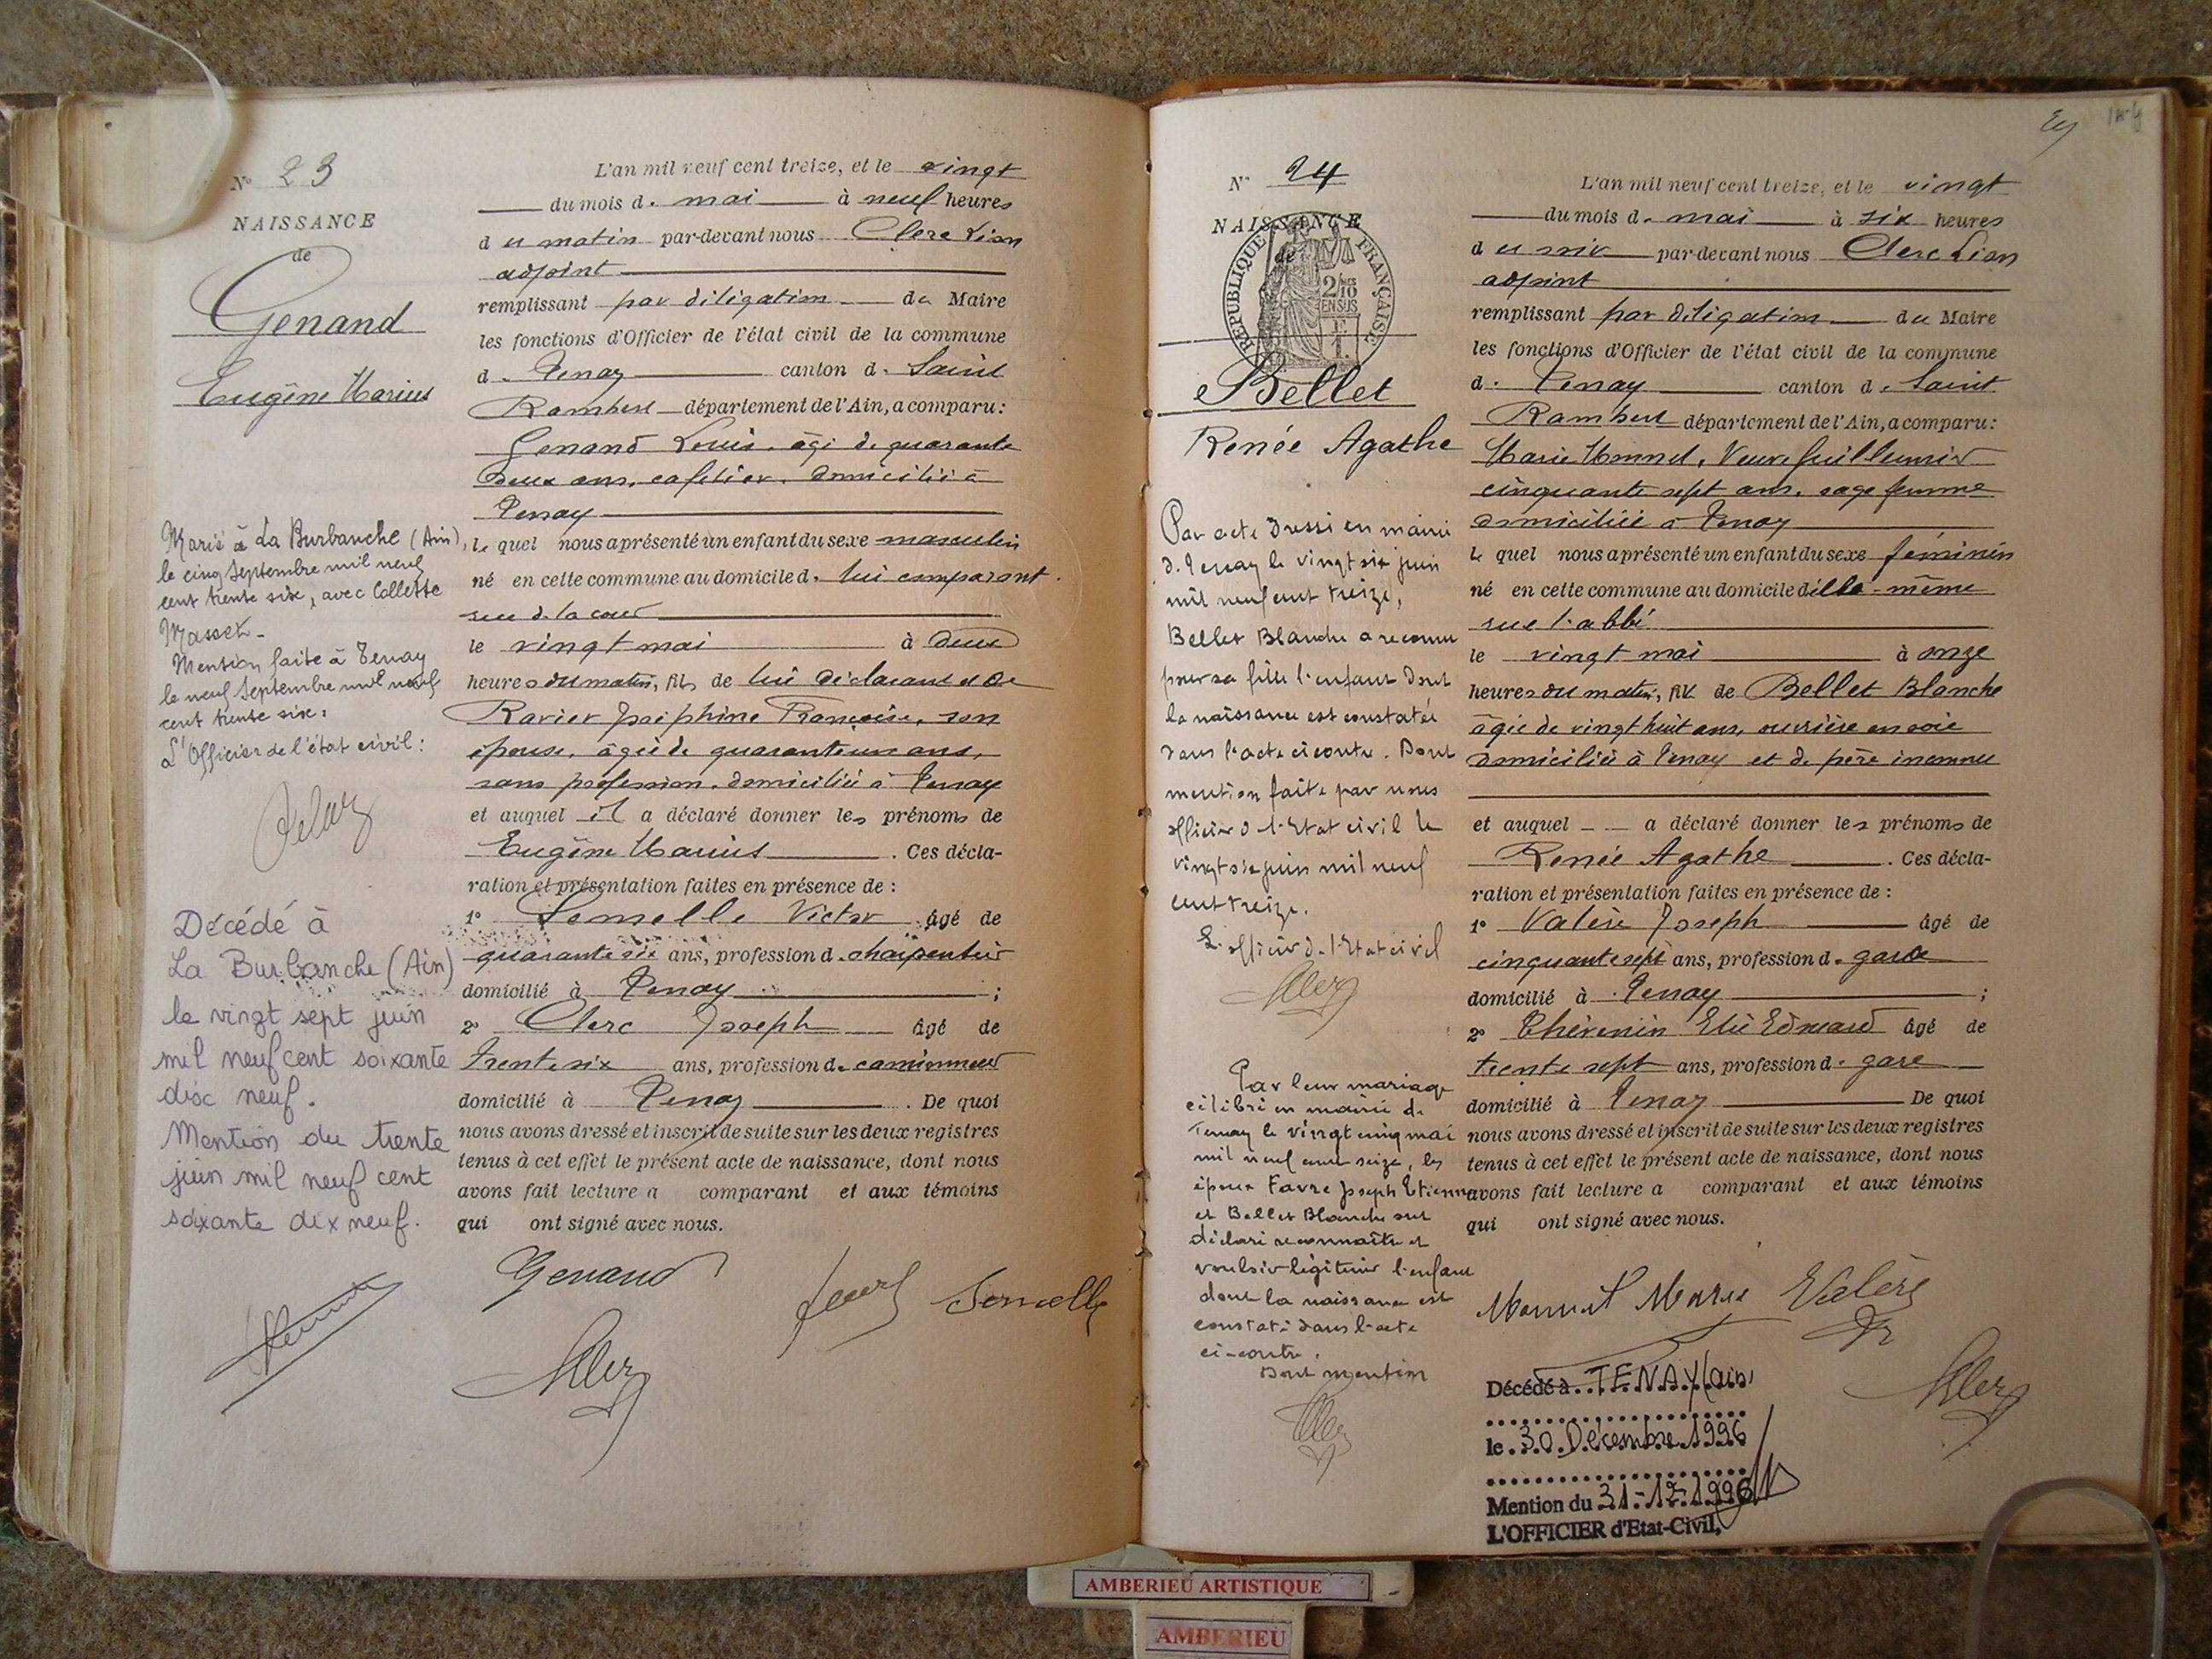 N° 23
NAISSANCE
de
Genand
Eugène Marius
Marié à La Burbanche (Ain),
le cinq Septembre mil neuf
cent trente six, avec Collette
Masset.
Mention faite à Tenay
le neuf Septembre mil neuf
cent trente six.
L'Officier de l'état civil :
Décédé à
La Burbanche (Ain)
le vingt sept juin
mil neuf cent soixante
dix neuf.
Mention du trente
juin mil neuf cent
soixante dix neuf.
L'an mil neuf cent treize, et le vingt
du mois d. mai à neuf heures
du matin par-devant nous Clerc Léon
adjoint
remplissant par déligation du Maire
les fonctions d'Officier de l'état civil de la commune
d. Tenay canton d. Saint
Rambert département de l'Ain, a comparu :
Genand Louis, âgé de quarante
deux ans, cafetier, domicilié à
Tenay
lequel nous a présenté un enfant du sexe masculin
né en cette commune au domicile d. lui comparant
rue de la cour
le vingt mai à deux
heures du matin, fils de lui déclarant et de
Ravier Joséphine Françoise, son
épouse, âgée de quarante un ans,
sans profession, domiciliée à Tenay
et auquel il a déclaré donner les prénoms de
Eugène Marius. Ces décla-
ration et présentation faites en présence de :
1° Semelle Victor âgé de
quarante six ans, profession d. charpentier
domicilié à Tenay ;
2° Clerc Joseph âgé de
trente six ans, profession d. camionneur
domicilié à Tenay. De quoi
nous avons dressé et inscrit de suite sur les deux registres
tenus à cet effet le présent acte de naissance, dont nous
avons fait lecture a comparant et aux témoins
qui ont signé avec nous.
Genand
Semelle
N° 24
NAISSANCE
de
REPUBLIQUE FRANÇAISE
2/10 EN SUS
Bellet
Renée Agathe
Par acte dressé en mairie
d. Tenay le vingt six juin
mil neuf cent treize,
Bellet Blanche a reconnu
pour sa fille l'enfant dont
la naissance est constatée
dans l'acte ci contre. Dont
mention faite par nous
officier d. l'Etat civil le
vingt six juin mil neuf
cent treize.
L'officier d. l'Etat civil
Par leur mariage
célébré en mairie de
Tenay le vingt cinq mai
mil neuf cent seize, les
époux Favre Joseph Etienne
et Bellet Blanche ont
déclaré reconnaître et
vouloir légitimer l'enfant
dont la naissance est
constaté dans l'acte
ci-contre.
Dont mention
L'an mil neuf cent treize, et le vingt
du mois d. mai à six heures
du soir par-devant nous Clerc Léon
adjoint
remplissant par déligation du Maire
les fonctions d'Officier de l'état civil de la commune
d. Tenay canton d. Saint
Rambert département de l'Ain, a comparu :
Marie Monnet, Veuve Guillermin
cinquante sept ans, sage femme
domiciliée à Tenay
lequel nous a présenté un enfant du sexe féminin
né en cette commune au domicile d'elle-même
rue l'abbé
le vingt mai à onze
heures du matin, fille de Bellet Blanche
âgée de vingt huit ans, ouvrière en soie
domiciliée à Tenay et de père inconnu
et auquel a déclaré donner les prénoms de
Renée Agathe. Ces décla-
ration et présentation faites en présence de :
1° Valère Joseph âgé de
cinquante sept ans, profession d. garde
domicilié à Tenay ;
2° Thévenin Elie Edouard âgé de
trente sept ans, profession d. gare
domicilié à Tenay De quoi
nous avons dressé et inscrit de suite sur les deux registres
tenus à cet effet le présent acte de naissance, dont nous
avons fait lecture a comparant et aux témoins
qui ont signé avec nous.
Monnet Marie Valère
Décédé à TENAY (ain)
le 30 Décembre 1996
Mention du 31-12-1996
L'OFFICIER d'Etat-Civil,
AMBERIEU ARTISTIQUE
AMBERIEU